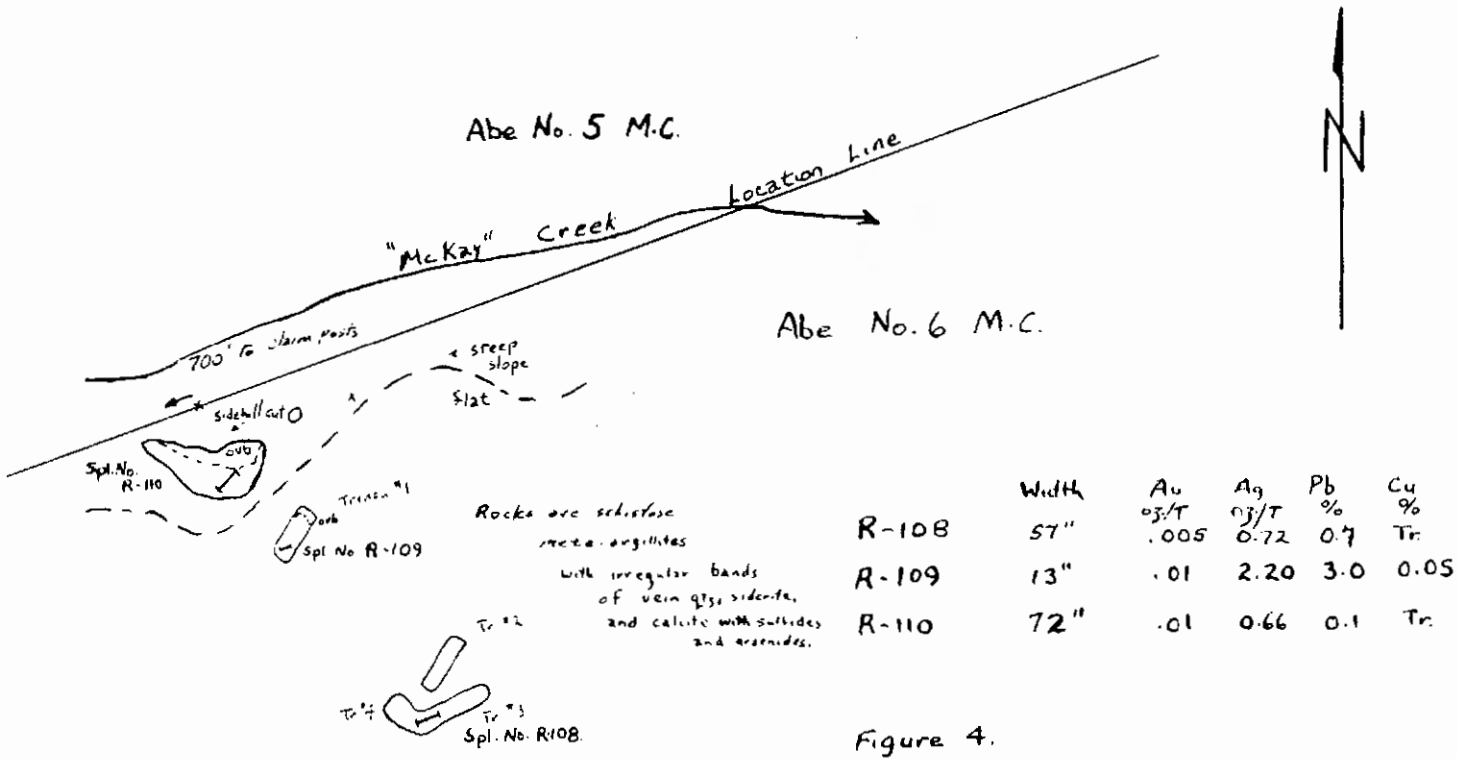 Abe No. 5 M.C.
N
Location Line
"McKay" Creek
Abe No. 6 M.C.
700' to claim posts
steep
slope
flat
sidehill cut
ovb
Spl. No.
R-110
Trench #1
ovb
Spl No R-109
Rocks are schistose
meta-argillites
with irregular bands
of vein qtz, siderite,
and calcite with sulfides
and arsenides.
Tr #2
Tr #4
Tr #3
Spl. No. R-108.
Width Au Ag Pb Cu
oz/T oz/T % %
R-108 57" .005 0.72 0.7 Tr.
R-109 13" .01 2.20 3.0 0.05
R-110 72" .01 0.66 0.1 Tr.
Figure 4.